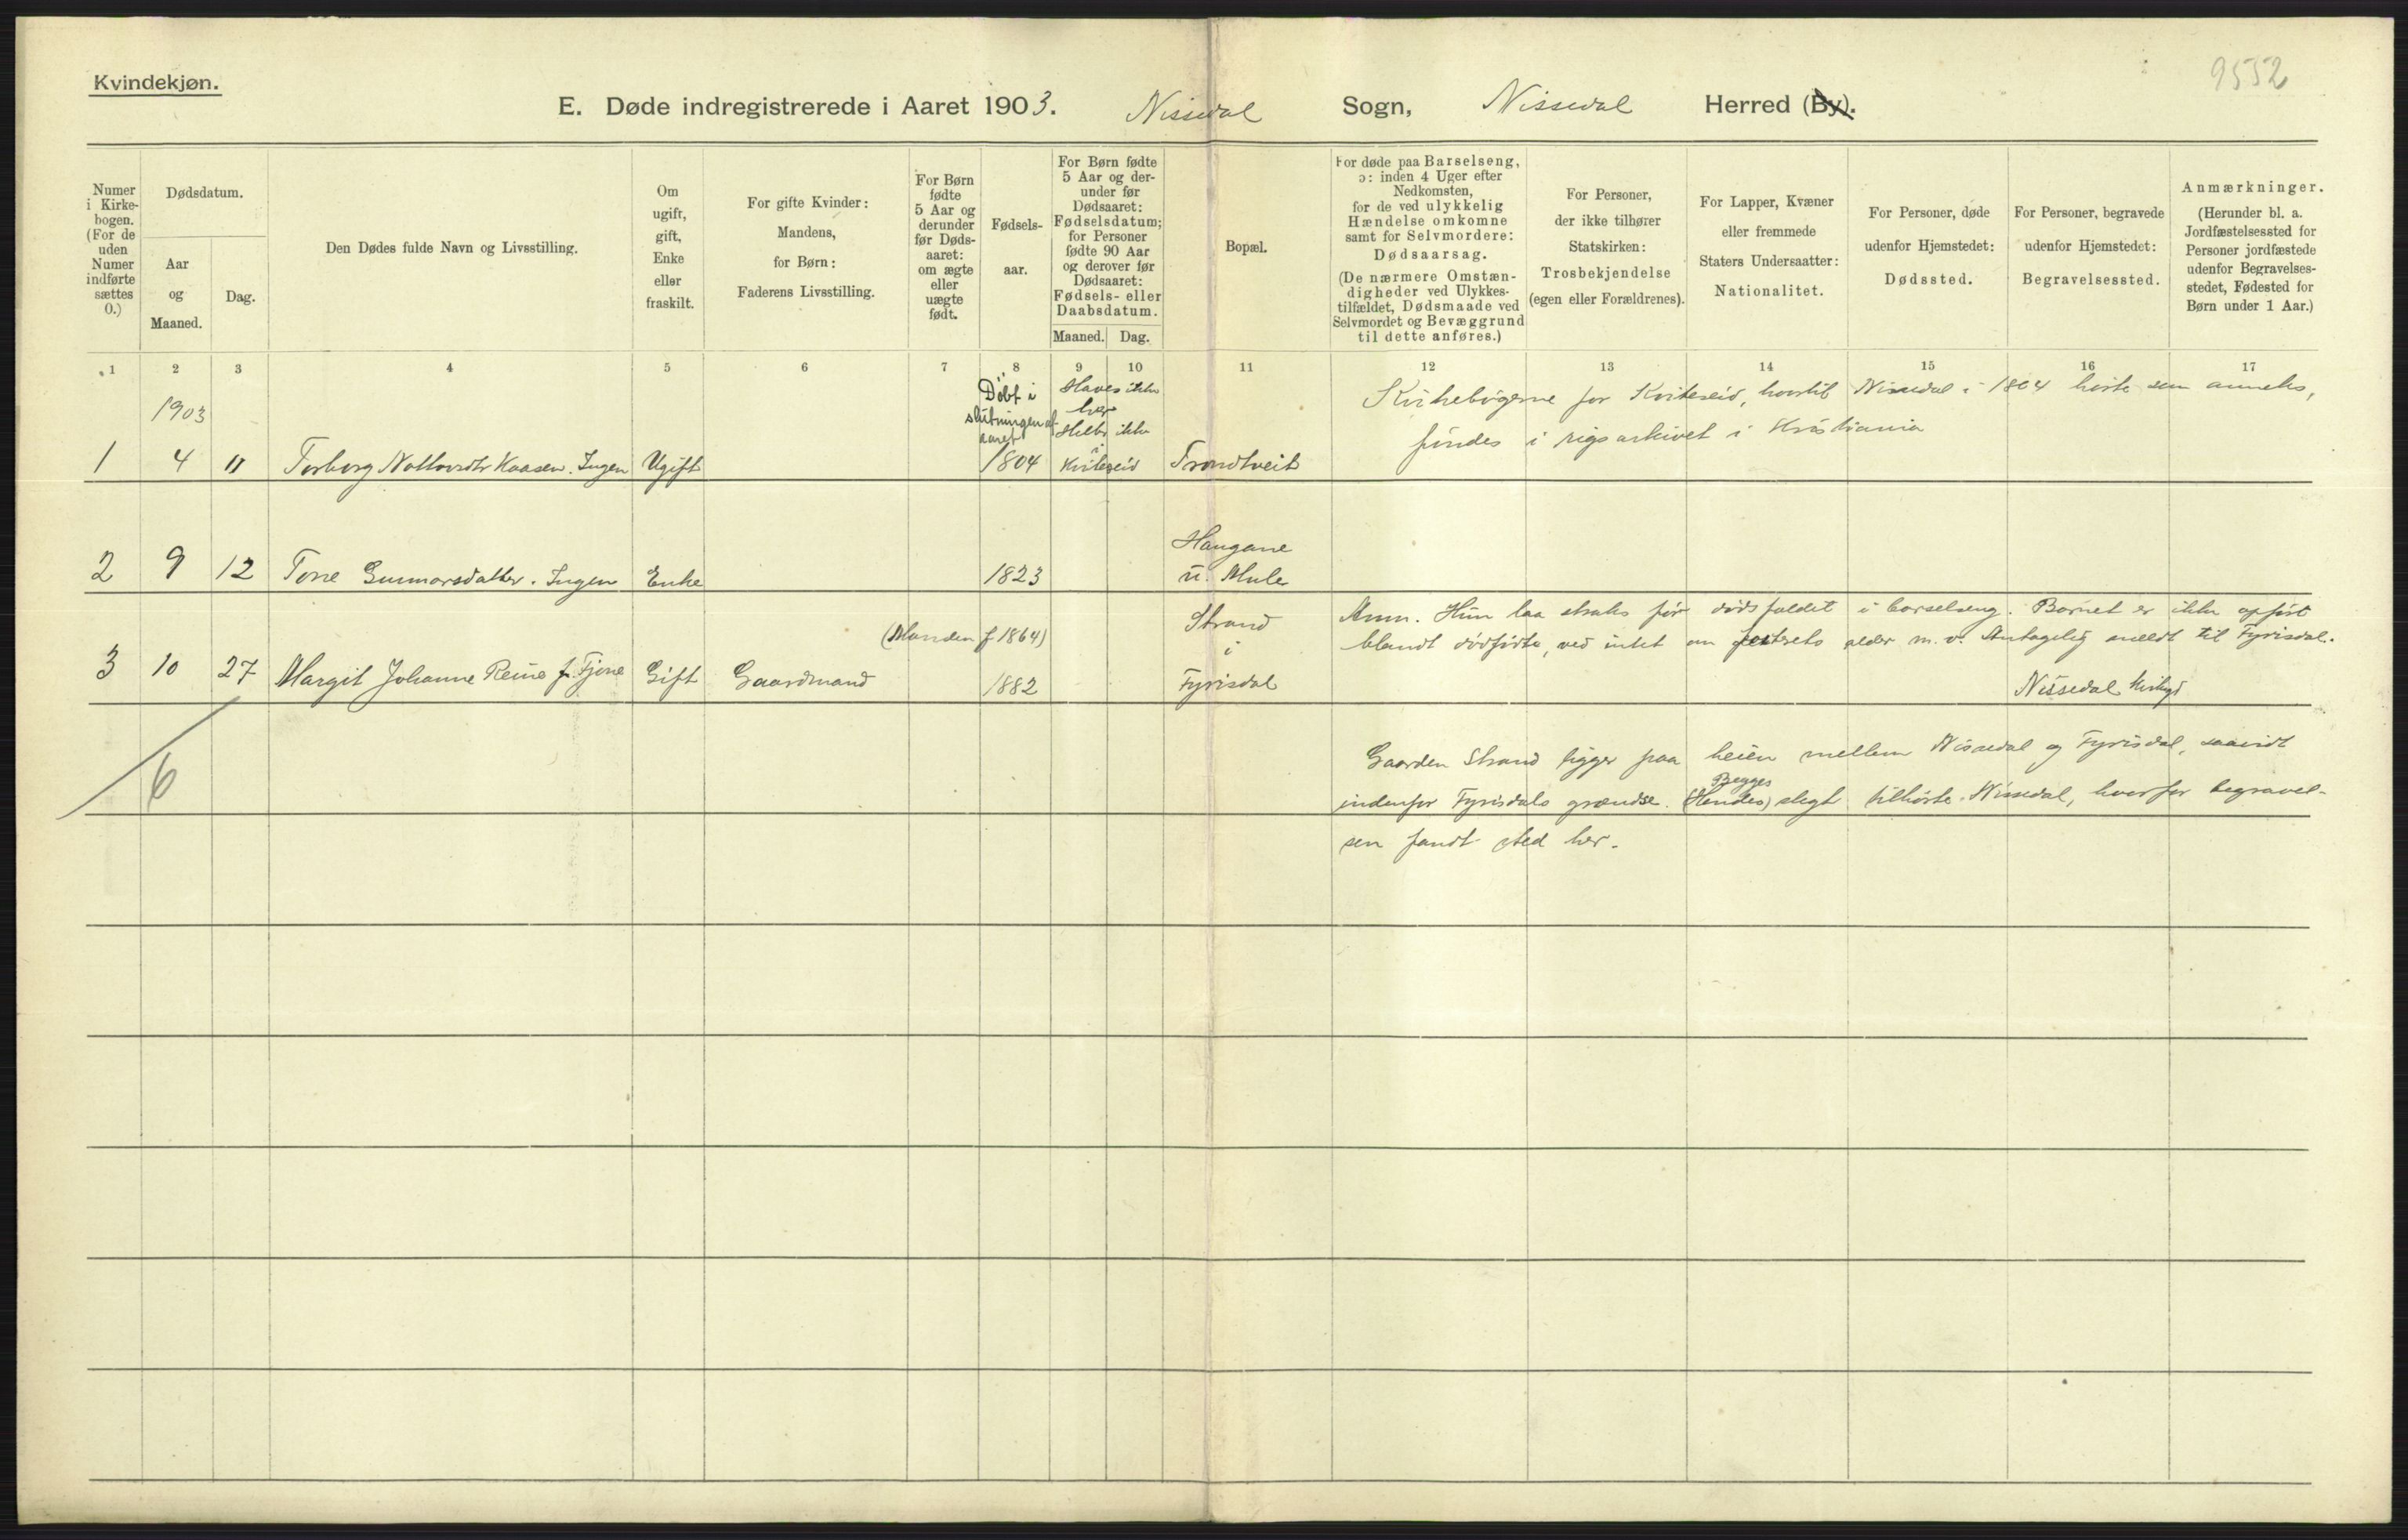 Kvindekjøn.
9552
E. Døde indregistrerede i Aaret 1903. Nissedal Sogn, Nissedal Herred (By).
Numer
i Kirke-
bogen.
(For de
uden
Numer
indførte
sættes
0.)
Dødsdatum.
Aar
og
Maaned.
Dag.
Den Dødes fulde Navn og Livsstilling.
Om
ugift,
gift,
Enke
eller
fraskilt.
For gifte Kvinder:
Mandens,
for Børn:
Faderens Livsstilling.
For Børn
fødte
5 Aar og
derunder
før Døds-
aaret:
om ægte
eller
uægte
født.
Fødsels-
aar.
For Børn fødte
5 Aar og der-
under før
Dødsaaret:
Fødselsdatum;
for Personer
fødte 90 Aar
og derover før
Dødsaaret:
Fødsels- eller
Daabsdatum.
Maaned. Dag.
Bopæl.
For døde paa Barselseng,
ɔ: inden 4 Uger efter
Nedkomsten,
for de ved ulykkelig
Hændelse omkomne
samt for Selvmordere:
Dødsaarsag.
(De nærmere Omstæn-
digheder ved Ulykkes-
tilfældet, Dødsmaade ved
Selvmordet og Bevæggrund
til dette anføres.)
For Personer,
der ikke tilhører
Statskirken:
Trosbekjendelse
(egen eller Forældrenes).
For Lapper, Kvæner
eller fremmede
Staters Undersaatter:
Nationalitet.
For Personer, døde
udenfor Hjemstedet:
Dødssted.
For Personer, begravede
udenfor Hjemstedet:
Begravelsessted.
Anmærkninger.
(Herunder bl. a.
Jordfæstelsessted for
Personer jordfæstede
udenfor Begravelses-
stedet, Fødested for
Børn under 1 Aar.)
1 2 3 4 5 6 7 8 9 10 11 12 13 14 15 16 17
1903
Døbt i
slutningen af
aaret
Haves ikke
her
Heller ikke
i
Kirkebøgerne for Kviteseid, hvortil Nissedal i 1804 hørte som anneks,
findes i rigsarkivet i Kristiania
1 4 11 Torborg Notto Kaasen. Ingen Ugift 1804 Kviteseid Trondtveit
Haugane
2 9 12 Tone Gunnarsdatter. Ingen Enke 1823 u. Mule
Strand
i
Anm. Hun laa straks før dødsfaldet i barselseng. Barnet er ikke opført
blandt dødfødte, ved intet om fostrets alder m. v. Antagelig meldt til Fyrisdal.
(Manden f 1864)
3 10 27 Margit Johanne Reine f. Fjone Gift Gaardmand 1882 Fyrisdal Nissedal
6
Gaarden Strand ligger paa heien mellem Nissedal og Fyrisdal, saavidt
Begges
indenfor Fyrisdals grændse. (Hendes) slegt tilhørte Nissedal, hvorfor begravel-
sen fandt sted her.